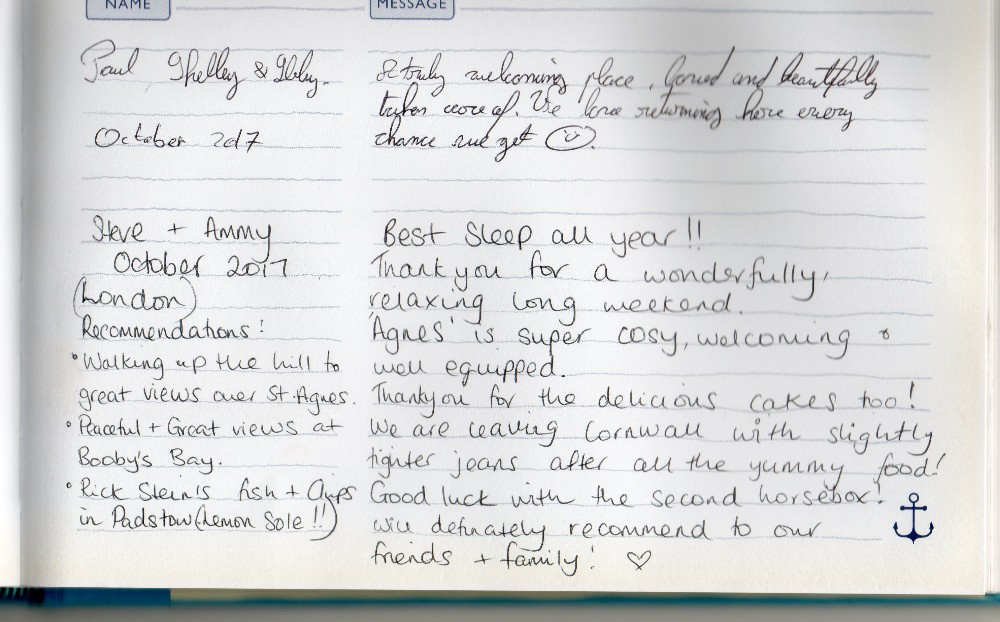 NAME
MESSAGE
Paul Shelley & Ibby.
A truly welcoming place. Loved and beautifully
taken care of. We love returning here every
October 2017
chance we get
Steve + Ammy
October 2017
(London)
Recommendations:
• Walking up the hill to
great views over St. Agnes.
• Peaceful + Great views at
Booby's Bay.
• Rick Stein's fish + Chips
in Padstow (Lemon Sole!!)
Best Sleep all year!!
Thank you for a wonderfully,
relaxing long weekend.
'Agnes' is super cosy, welcoming &
well equipped.
Thankyou for the delicious cakes too!
We are leaving Cornwall with slightly
tighter jeans after all the yummy food!
Good luck with the second horsebox!
will definately recommend to our
friends + family! ♡